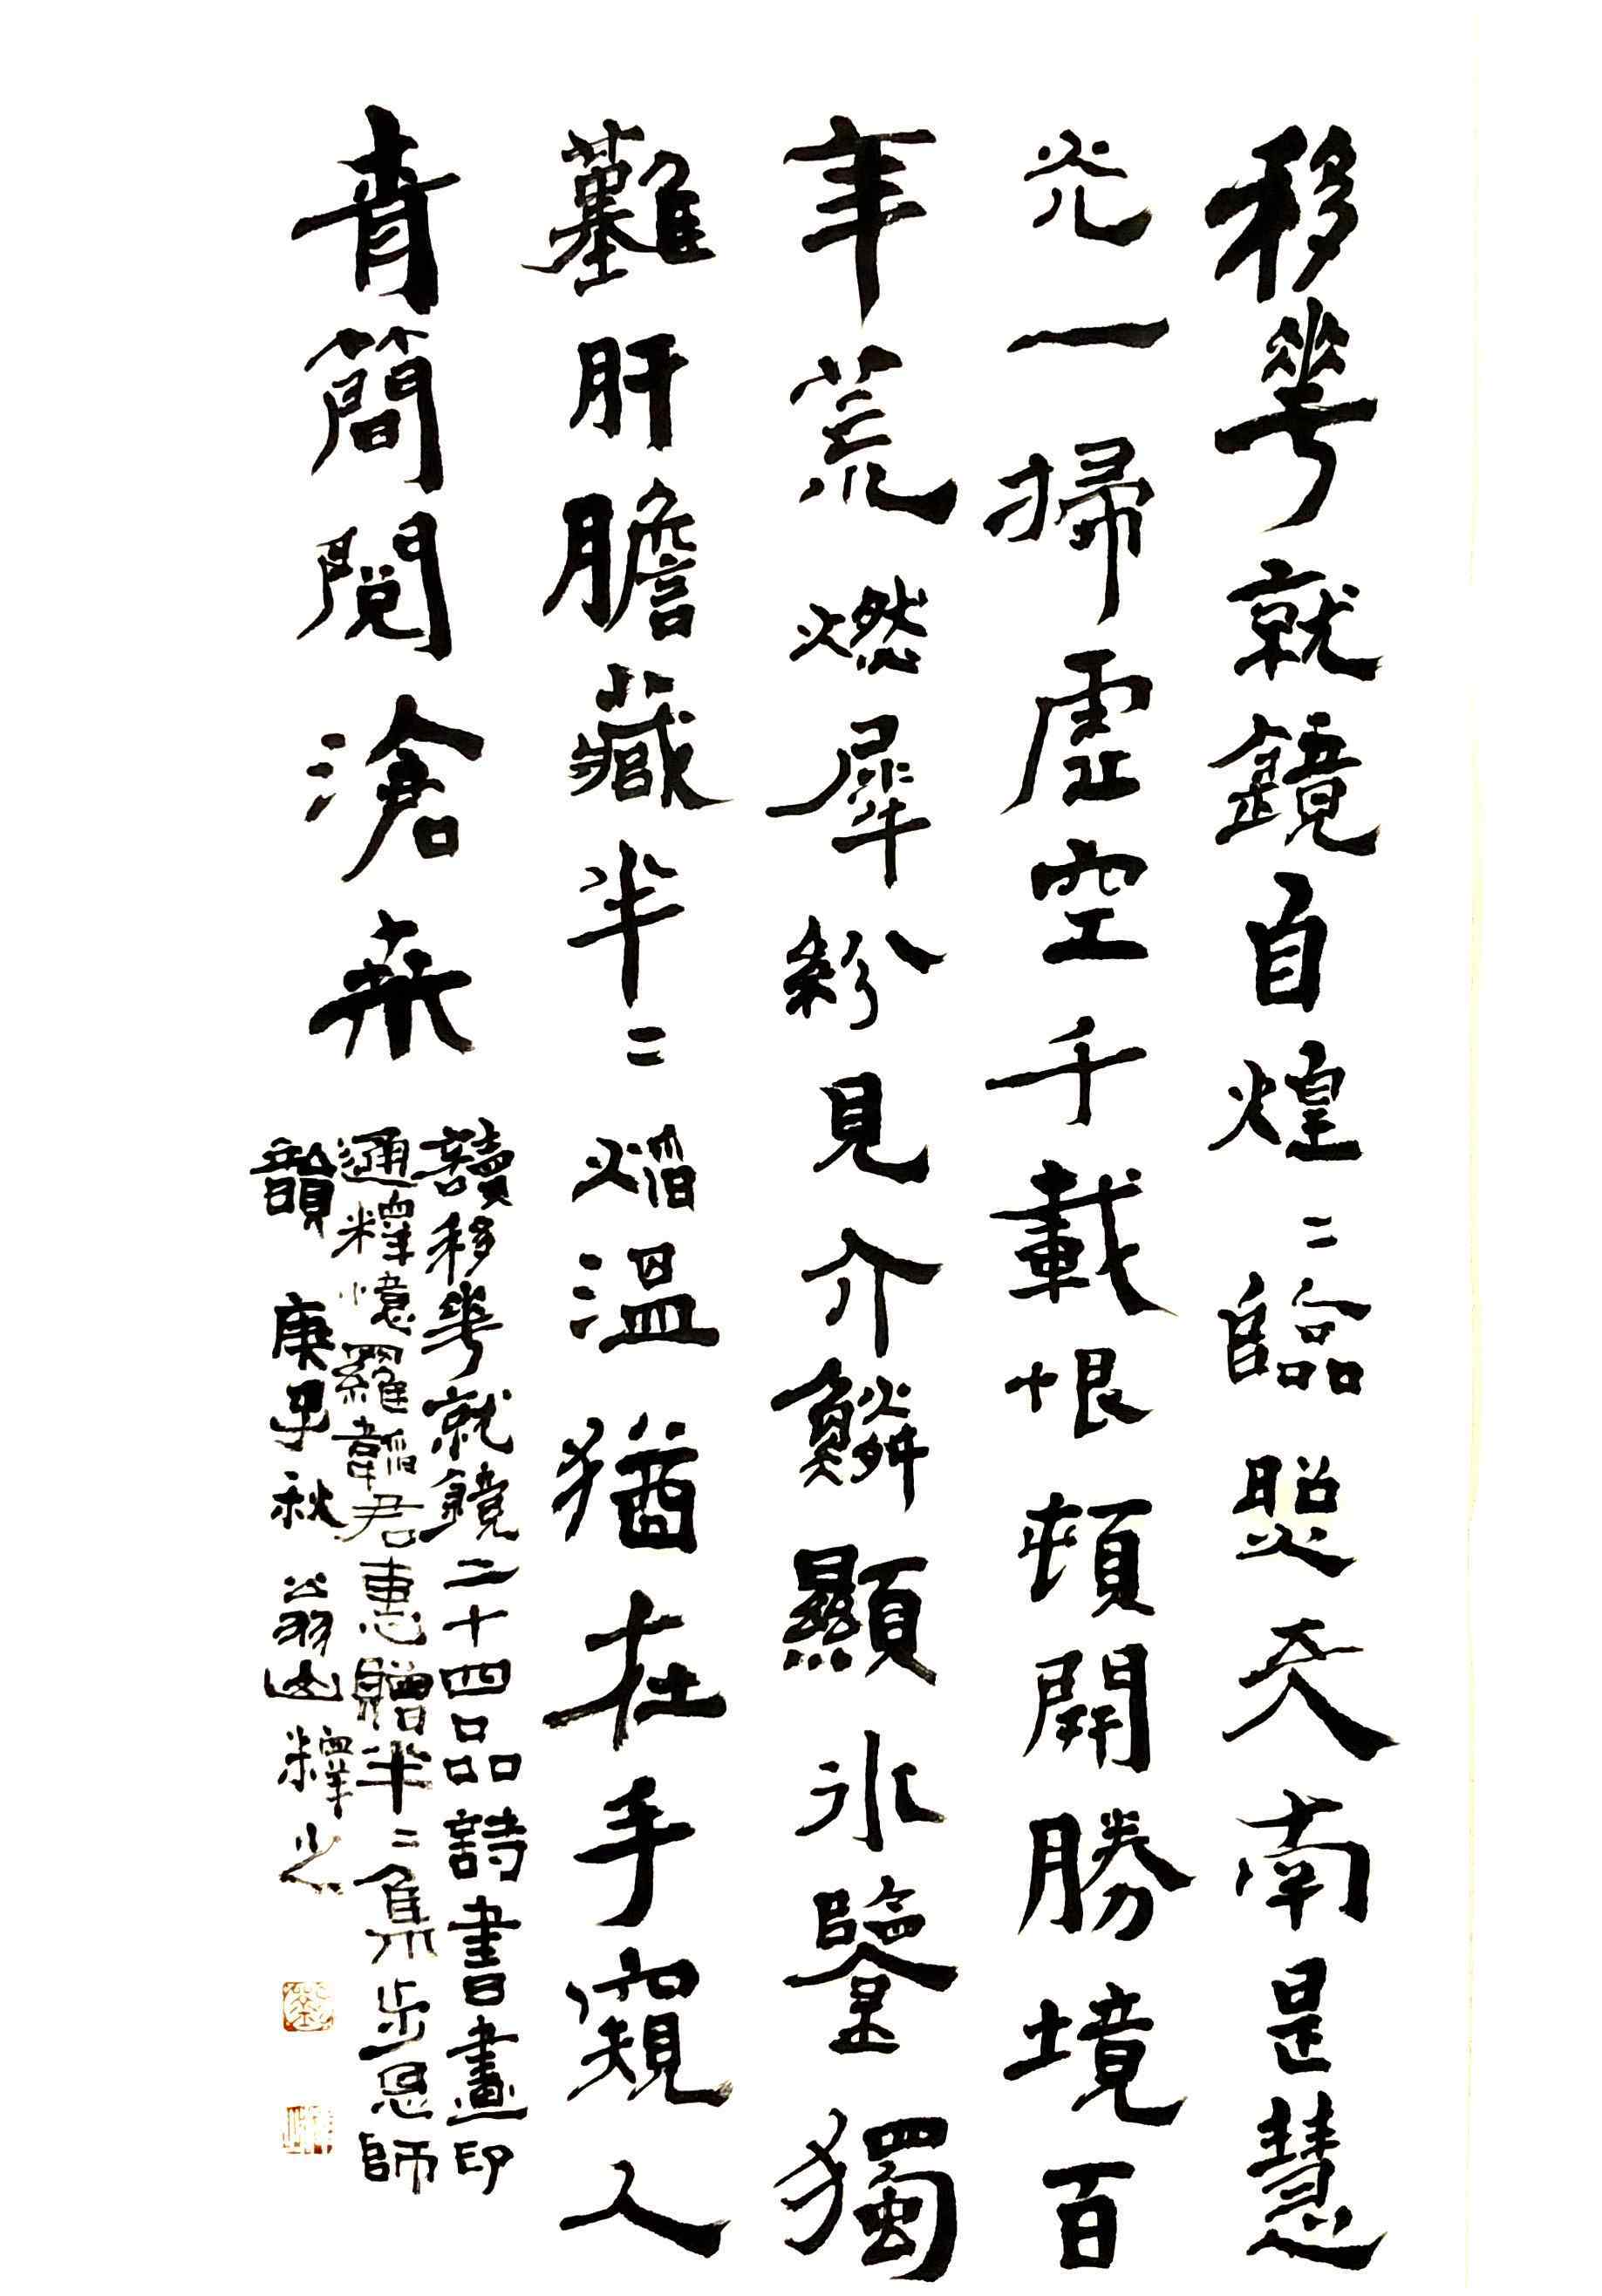 移華就鏡自煌〻臨照天南是慧
光一掃虛空千載恨頓開勝境百
年荒燃犀紛見介鱗顯冰鑒獨
難肝膽藏半〻焰溫猶在手窺人
青簡閱滄桑
讀移華就鏡二十四品詩書畫印
通釋憶羅韜君惠贈半〻集步恩師
韻 庚子秋 翁山釋之